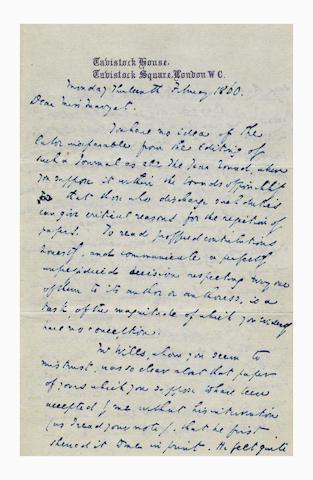 Tavistock House,
Tavistock Square, London W C.
Monday Thirteenth February 1860.
Dear Miss Marryat.
You have no idea of the
labor inseparable from the editing of
such a Journal as All The Year Round, when
you suppose it within the bounds of possibility
that those who discharge such duties
can give critical reasons for the rejection of
papers. To read proffered contributions
honestly, and communicate a perfectly
unprejudiced decision respecting every one
of them to its author or authoress, is a
task of the magnitude of which you evidently
have no conception.
Mr Wills, whom you seem to
mistrust, was so clear about that paper
of yours which you suppose to have been
accepted by me without his intervention
(as I read your note), that he first
shewed it to me in print. He felt quite